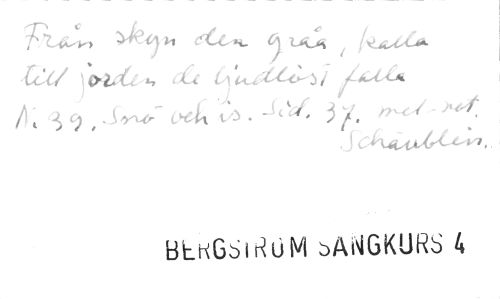 Från skyn den gråa, kalla
till jorden de ljudlöst falla
N. 39. Snö och is. Sid. 37. mel.-not.
Schäublin.
BERGSTRÖM SÅNGKURS 4